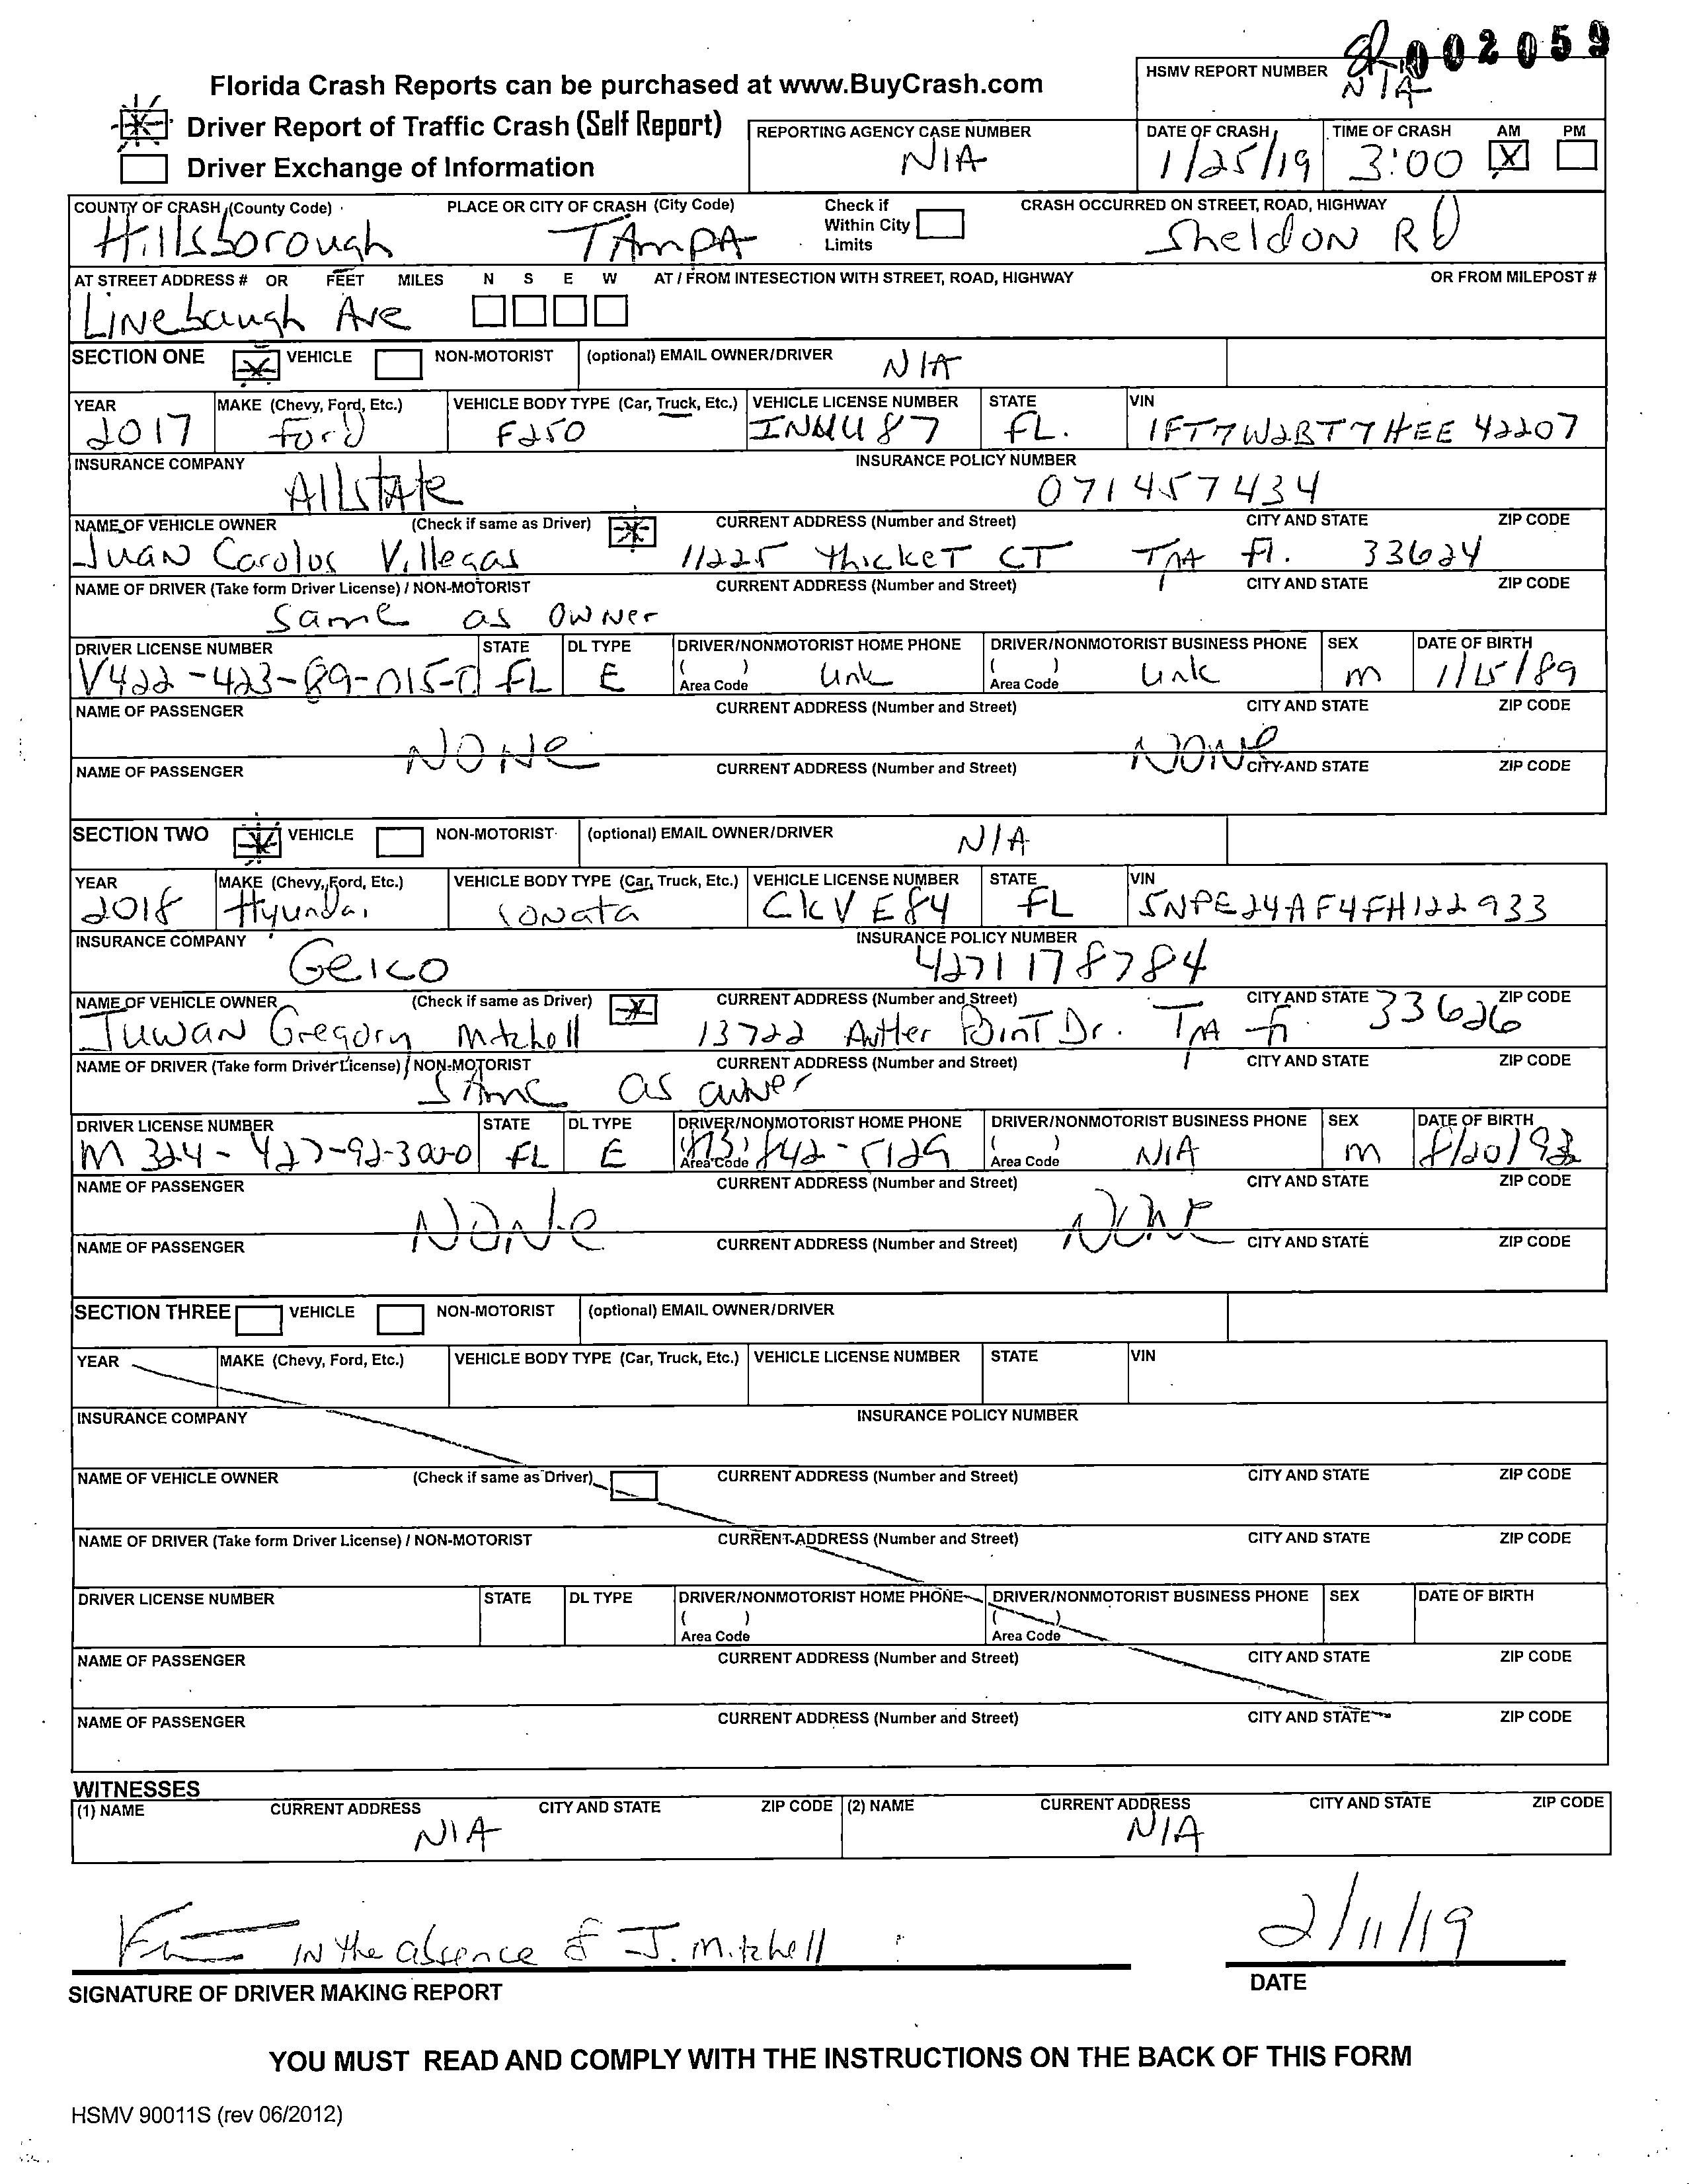 SR 002059
Florida Crash Reports can be purchased at www.BuyCrash.com
HSMV REPORT NUMBER N/A
Driver Report of Traffic Crash (Self Report)
Driver Exchange of Information
REPORTING AGENCY CASE NUMBER DATE OF CRASH TIME OF CRASH AM PM
N/A 1/25/19 3:00 X
COUNTY OF CRASH (County Code) PLACE OR CITY OF CRASH (City Code) Check if Within City Limits CRASH OCCURRED ON STREET, ROAD, HIGHWAY
Hillsborough TAmpA Sheldon RD
AT STREET ADDRESS # OR FEET MILES N S E W AT / FROM INTESECTION WITH STREET, ROAD, HIGHWAY OR FROM MILEPOST #
Linebaugh Ave
SECTION ONE X VEHICLE NON-MOTORIST (optional) EMAIL OWNER/DRIVER N/A
YEAR MAKE (Chevy, Ford, Etc.) VEHICLE BODY TYPE (Car, Truck, Etc.) VEHICLE LICENSE NUMBER STATE VIN
2017 Ford F250 FL. 1FT7W2BT7HEE42207
INSURANCE COMPANY INSURANCE POLICY NUMBER
Allstate 071457434
NAME OF VEHICLE OWNER (Check if same as Driver) X CURRENT ADDRESS (Number and Street) CITY AND STATE ZIP CODE
Juan Carolos Villegas 11225 Thicket CT TPA Fl. 33624
NAME OF DRIVER (Take form Driver License) / NON-MOTORIST CURRENT ADDRESS (Number and Street) CITY AND STATE ZIP CODE
Same as owner
DRIVER LICENSE NUMBER STATE DL TYPE DRIVER/NONMOTORIST HOME PHONE DRIVER/NONMOTORIST BUSINESS PHONE SEX DATE OF BIRTH
V422-423-89-015-0 FL E ( ) Area Code Unk ( ) Area Code Unk M 1/15/89
NAME OF PASSENGER CURRENT ADDRESS (Number and Street) CITY AND STATE ZIP CODE
NONE NONE
NAME OF PASSENGER CURRENT ADDRESS (Number and Street) CITY AND STATE ZIP CODE
SECTION TWO X VEHICLE NON-MOTORIST (optional) EMAIL OWNER/DRIVER N/A
YEAR MAKE (Chevy, Ford, Etc.) VEHICLE BODY TYPE (Car, Truck, Etc.) VEHICLE LICENSE NUMBER STATE VIN
2018 Hyundai Sonata CKVE84 FL 5NPE24AF4FH122933
INSURANCE COMPANY INSURANCE POLICY NUMBER
Geico 4271178784
NAME OF VEHICLE OWNER (Check if same as Driver) X CURRENT ADDRESS (Number and Street) CITY AND STATE ZIP CODE
Juwan Gregory Mitchell 13722 Antler Point Dr. TPA Fl 33626
NAME OF DRIVER (Take form Driver License) / NON-MOTORIST CURRENT ADDRESS (Number and Street) CITY AND STATE ZIP CODE
Same as owner
DRIVER LICENSE NUMBER STATE DL TYPE DRIVER/NONMOTORIST HOME PHONE DRIVER/NONMOTORIST BUSINESS PHONE SEX DATE OF BIRTH
M324-427-92-300-0 FL E (813) Area Code 842-5129 ( ) Area Code N/A M 8/20/92
NAME OF PASSENGER CURRENT ADDRESS (Number and Street) CITY AND STATE ZIP CODE
NONE NONE
NAME OF PASSENGER CURRENT ADDRESS (Number and Street) CITY AND STATE ZIP CODE
SECTION THREE VEHICLE NON-MOTORIST (optional) EMAIL OWNER/DRIVER
YEAR MAKE (Chevy, Ford, Etc.) VEHICLE BODY TYPE (Car, Truck, Etc.) VEHICLE LICENSE NUMBER STATE VIN
INSURANCE COMPANY INSURANCE POLICY NUMBER
NAME OF VEHICLE OWNER (Check if same as Driver) CURRENT ADDRESS (Number and Street) CITY AND STATE ZIP CODE
NAME OF DRIVER (Take form Driver License) / NON-MOTORIST CURRENT ADDRESS (Number and Street) CITY AND STATE ZIP CODE
DRIVER LICENSE NUMBER STATE DL TYPE DRIVER/NONMOTORIST HOME PHONE DRIVER/NONMOTORIST BUSINESS PHONE SEX DATE OF BIRTH
( ) Area Code ( ) Area Code
NAME OF PASSENGER CURRENT ADDRESS (Number and Street) CITY AND STATE ZIP CODE
NAME OF PASSENGER CURRENT ADDRESS (Number and Street) CITY AND STATE ZIP CODE
WITNESSES
(1) NAME CURRENT ADDRESS CITY AND STATE ZIP CODE (2) NAME CURRENT ADDRESS CITY AND STATE ZIP CODE
N/A N/A
In the absence of J. Mitchell 2/11/19
SIGNATURE OF DRIVER MAKING REPORT DATE
YOU MUST READ AND COMPLY WITH THE INSTRUCTIONS ON THE BACK OF THIS FORM
HSMV 90011S (rev 06/2012)